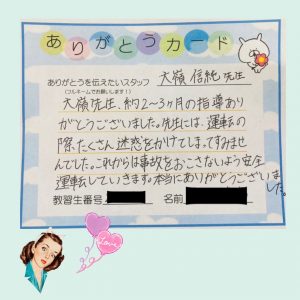 ありがとうカード
ありがとうを伝えたいスタッフ 大嶺 信純 先生
(フルネームでお願いします!)
大嶺先生、約2~3ヶ月の指導あり
がとうございました。先生には、運転の
際、たくさん迷惑をかけてしまってすみませ
んでした。これからは事故をおこさないよう安全
運転していきます。本当にありがとうございま
した。
教習生番号 名前
Love